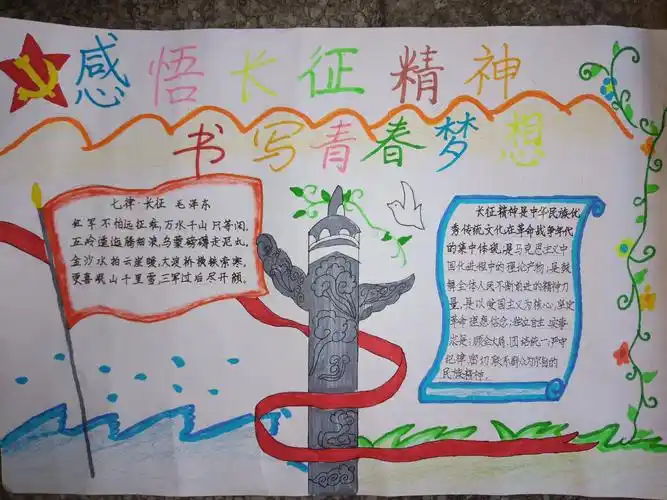 感悟长征精神
书写青春梦想
七律·长征 毛泽东
红军不怕远征难,万水千山只等闲。
五岭逶迤腾细浪,乌蒙磅礴走泥丸。
金沙水拍云崖暖,大渡桥横铁索寒。
更喜岷山千里雪,三军过后尽开颜。
长征精神是中华民族优
秀传统文化在革命战争年代
的集中体现,是马克思主义中
国化进程中的理论产物,是鼓
舞全体人民不断前进的精神力
量,是以爱国主义为核心,坚定
革命理想信念;独立自主 实事
求是;顾全大局,团结统一;严守
纪律,密切联系群众为宗旨的
民族精神。